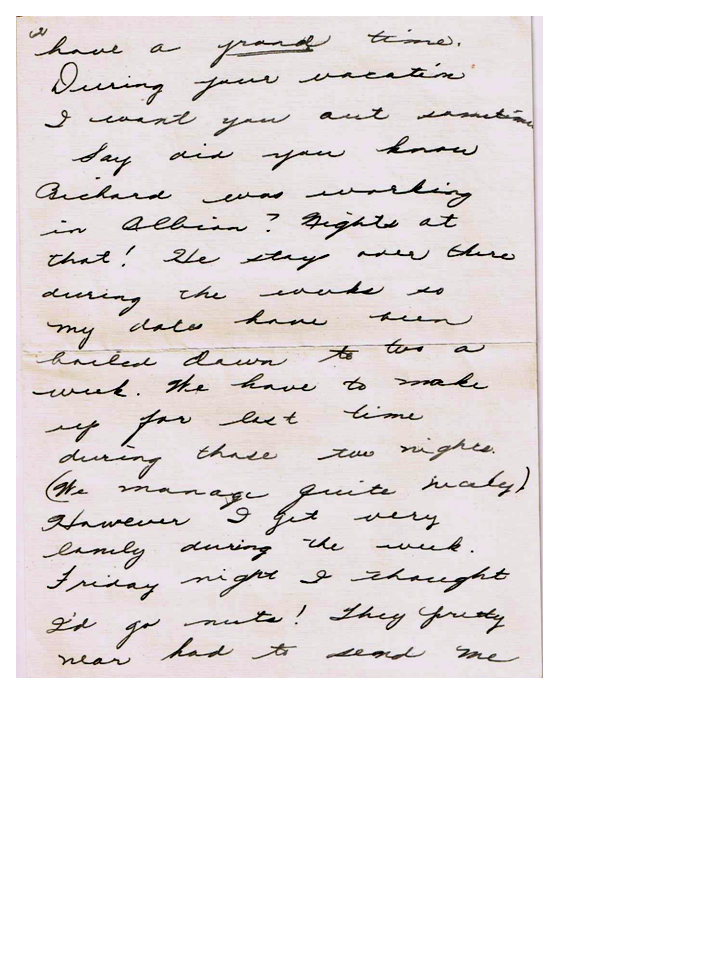 2
have a grand time.
During your vacation
I want you out sometime
Say did you know
Richard was working
in Albion? Nights at
that! He stays over there
during the weeks so
my dates have been
boiled down to two a
week. We have to make
up for last time
during those two nights.
(We manage quite nicely)
However I get very
lonely during the week.
Friday night I thought
I'd go nuts! They pretty
near had to send me